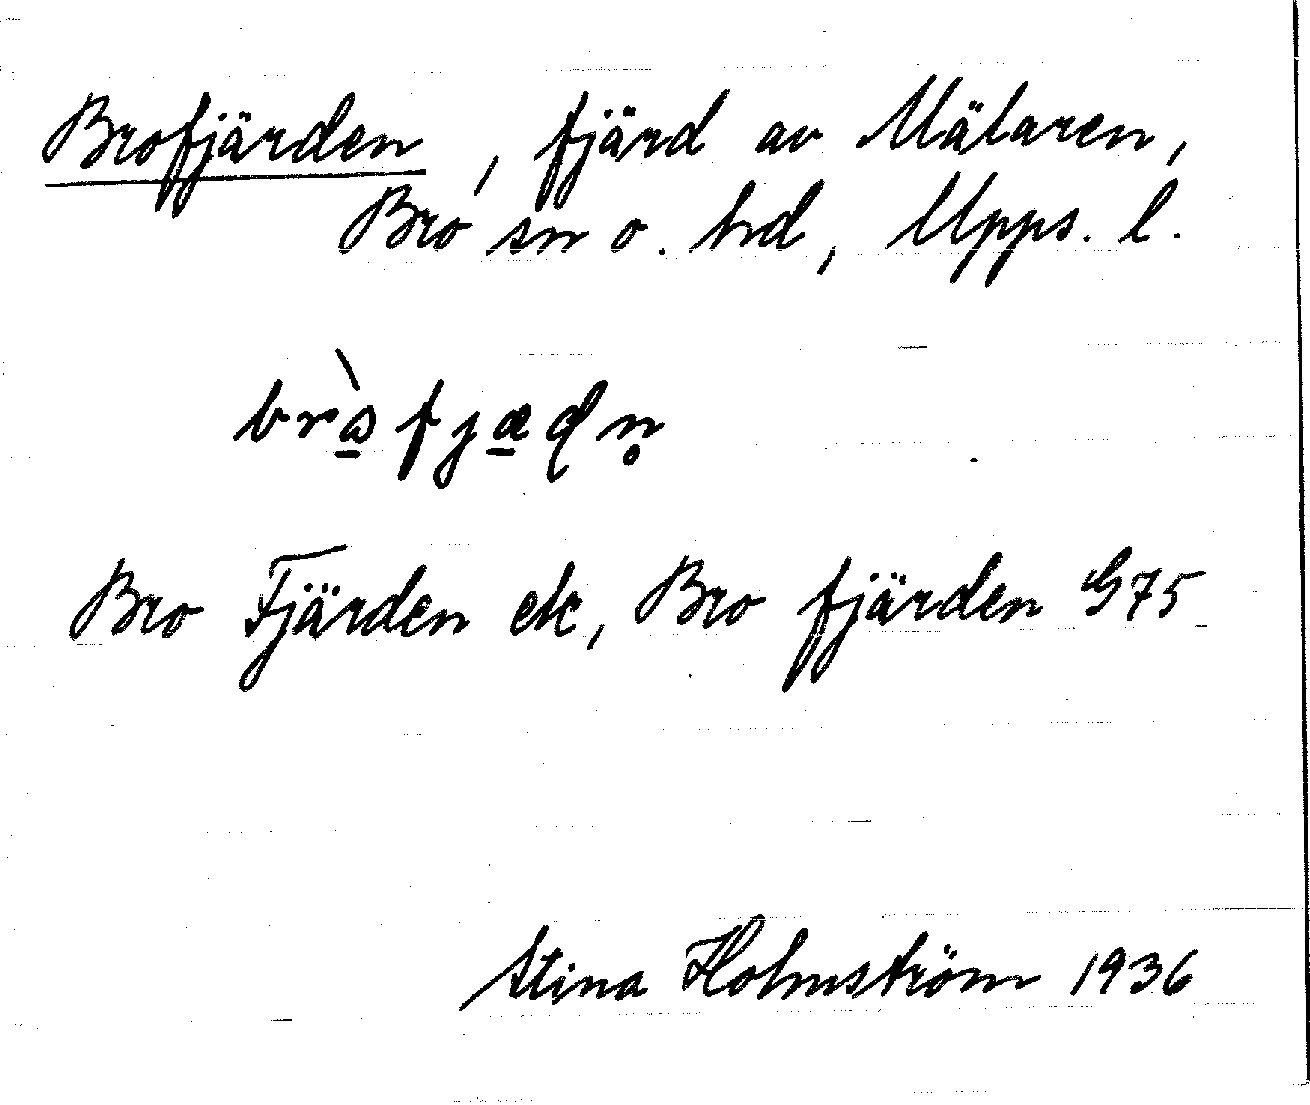 Brofjärden, fjärd av Mälaren,
Bro sn o. hd, Upps. l.
bràfjædn̥
Bro Fjärden ek, Bro fjärden G75
Stina Holmström 1936